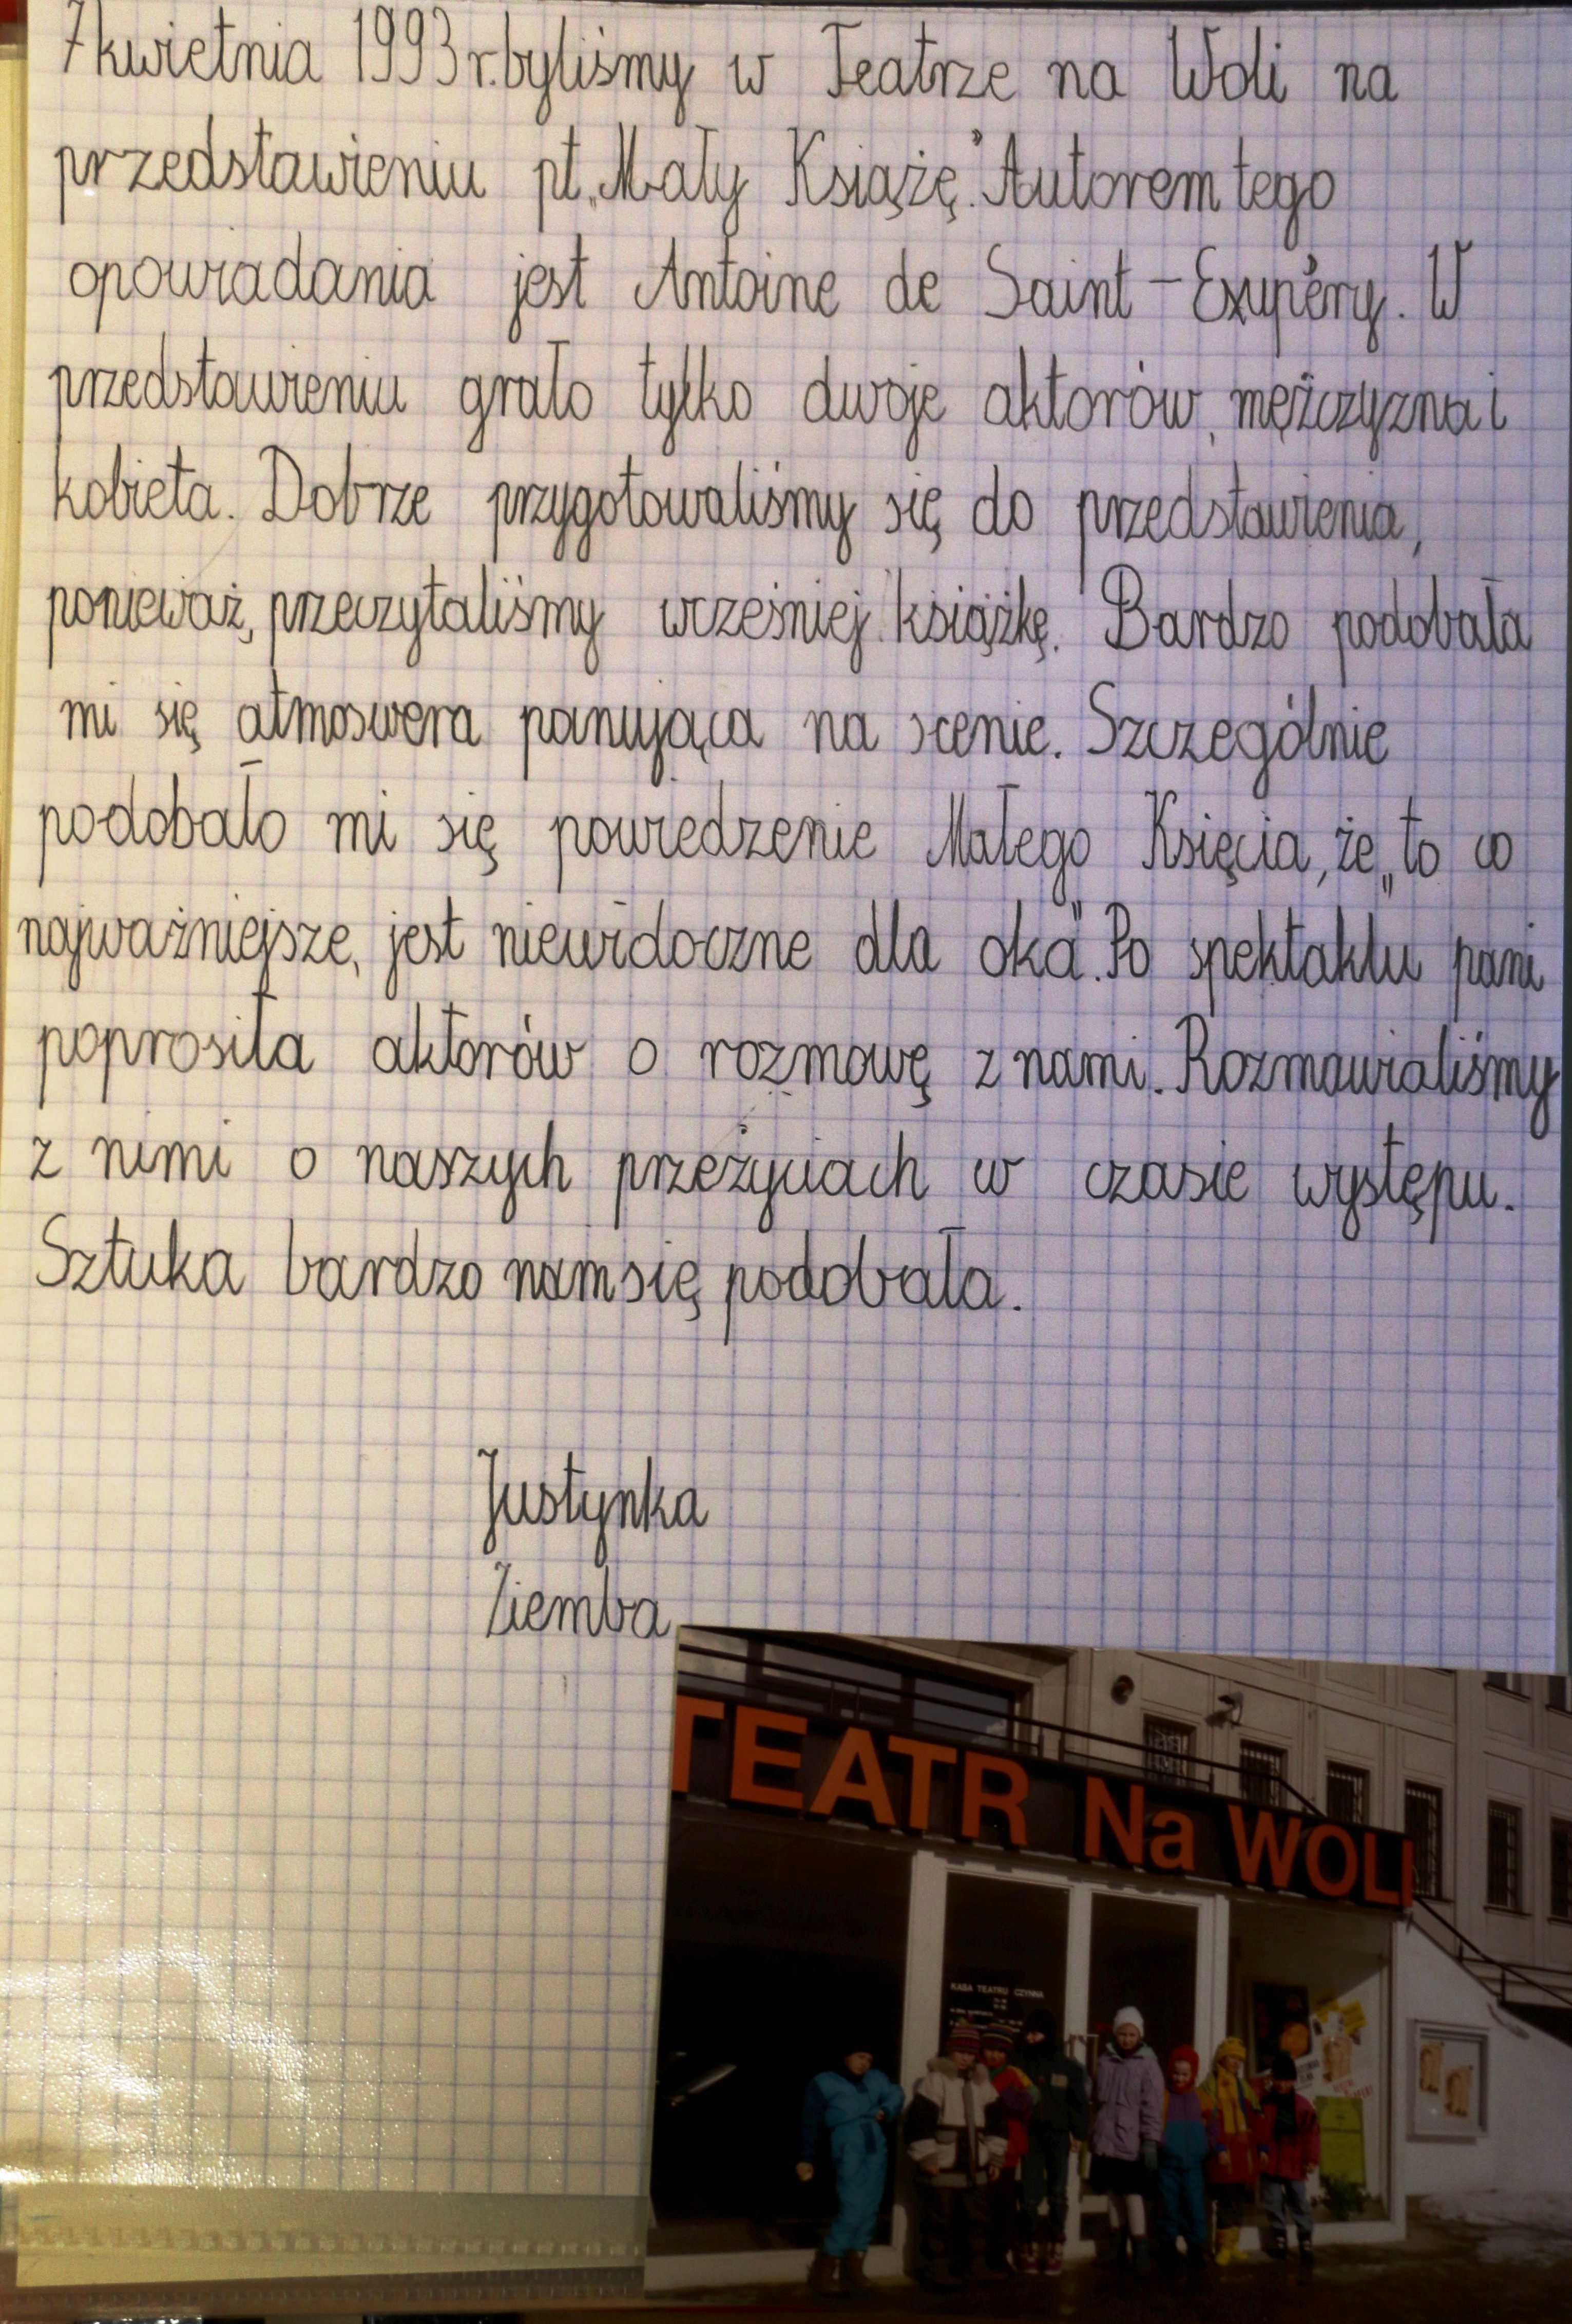 7 kwietnia 1993 r. byliśmy w Teatrze na Woli na
przedstawieniu pt. „Mały Książę". Autorem tego
opowiadania jest Antoine de Saint – Exupéry. W
przedstawieniu grało tylko dwoje aktorów, mężczyzna i
kobieta. Dobrze przygotowaliśmy się do przedstawienia,
ponieważ, przeczytaliśmy wcześniej książkę. Bardzo podobała
mi się atmoswera panująca na scenie. Szczególnie
podobało mi się powiedzenie Małego Księcia, że „to co
najważniejsze, jest niewidoczne dla oka". Po spektaklu pani
poprosiła aktorów o rozmowę z nami. Rozmawialiśmy
z nimi o naszych przeżyciach w czasie występu.
Sztuka bardzo nam się podobała.
Justynka
Ziemba
TEATR Na WOLI
KASA TEATRU CZYNNA